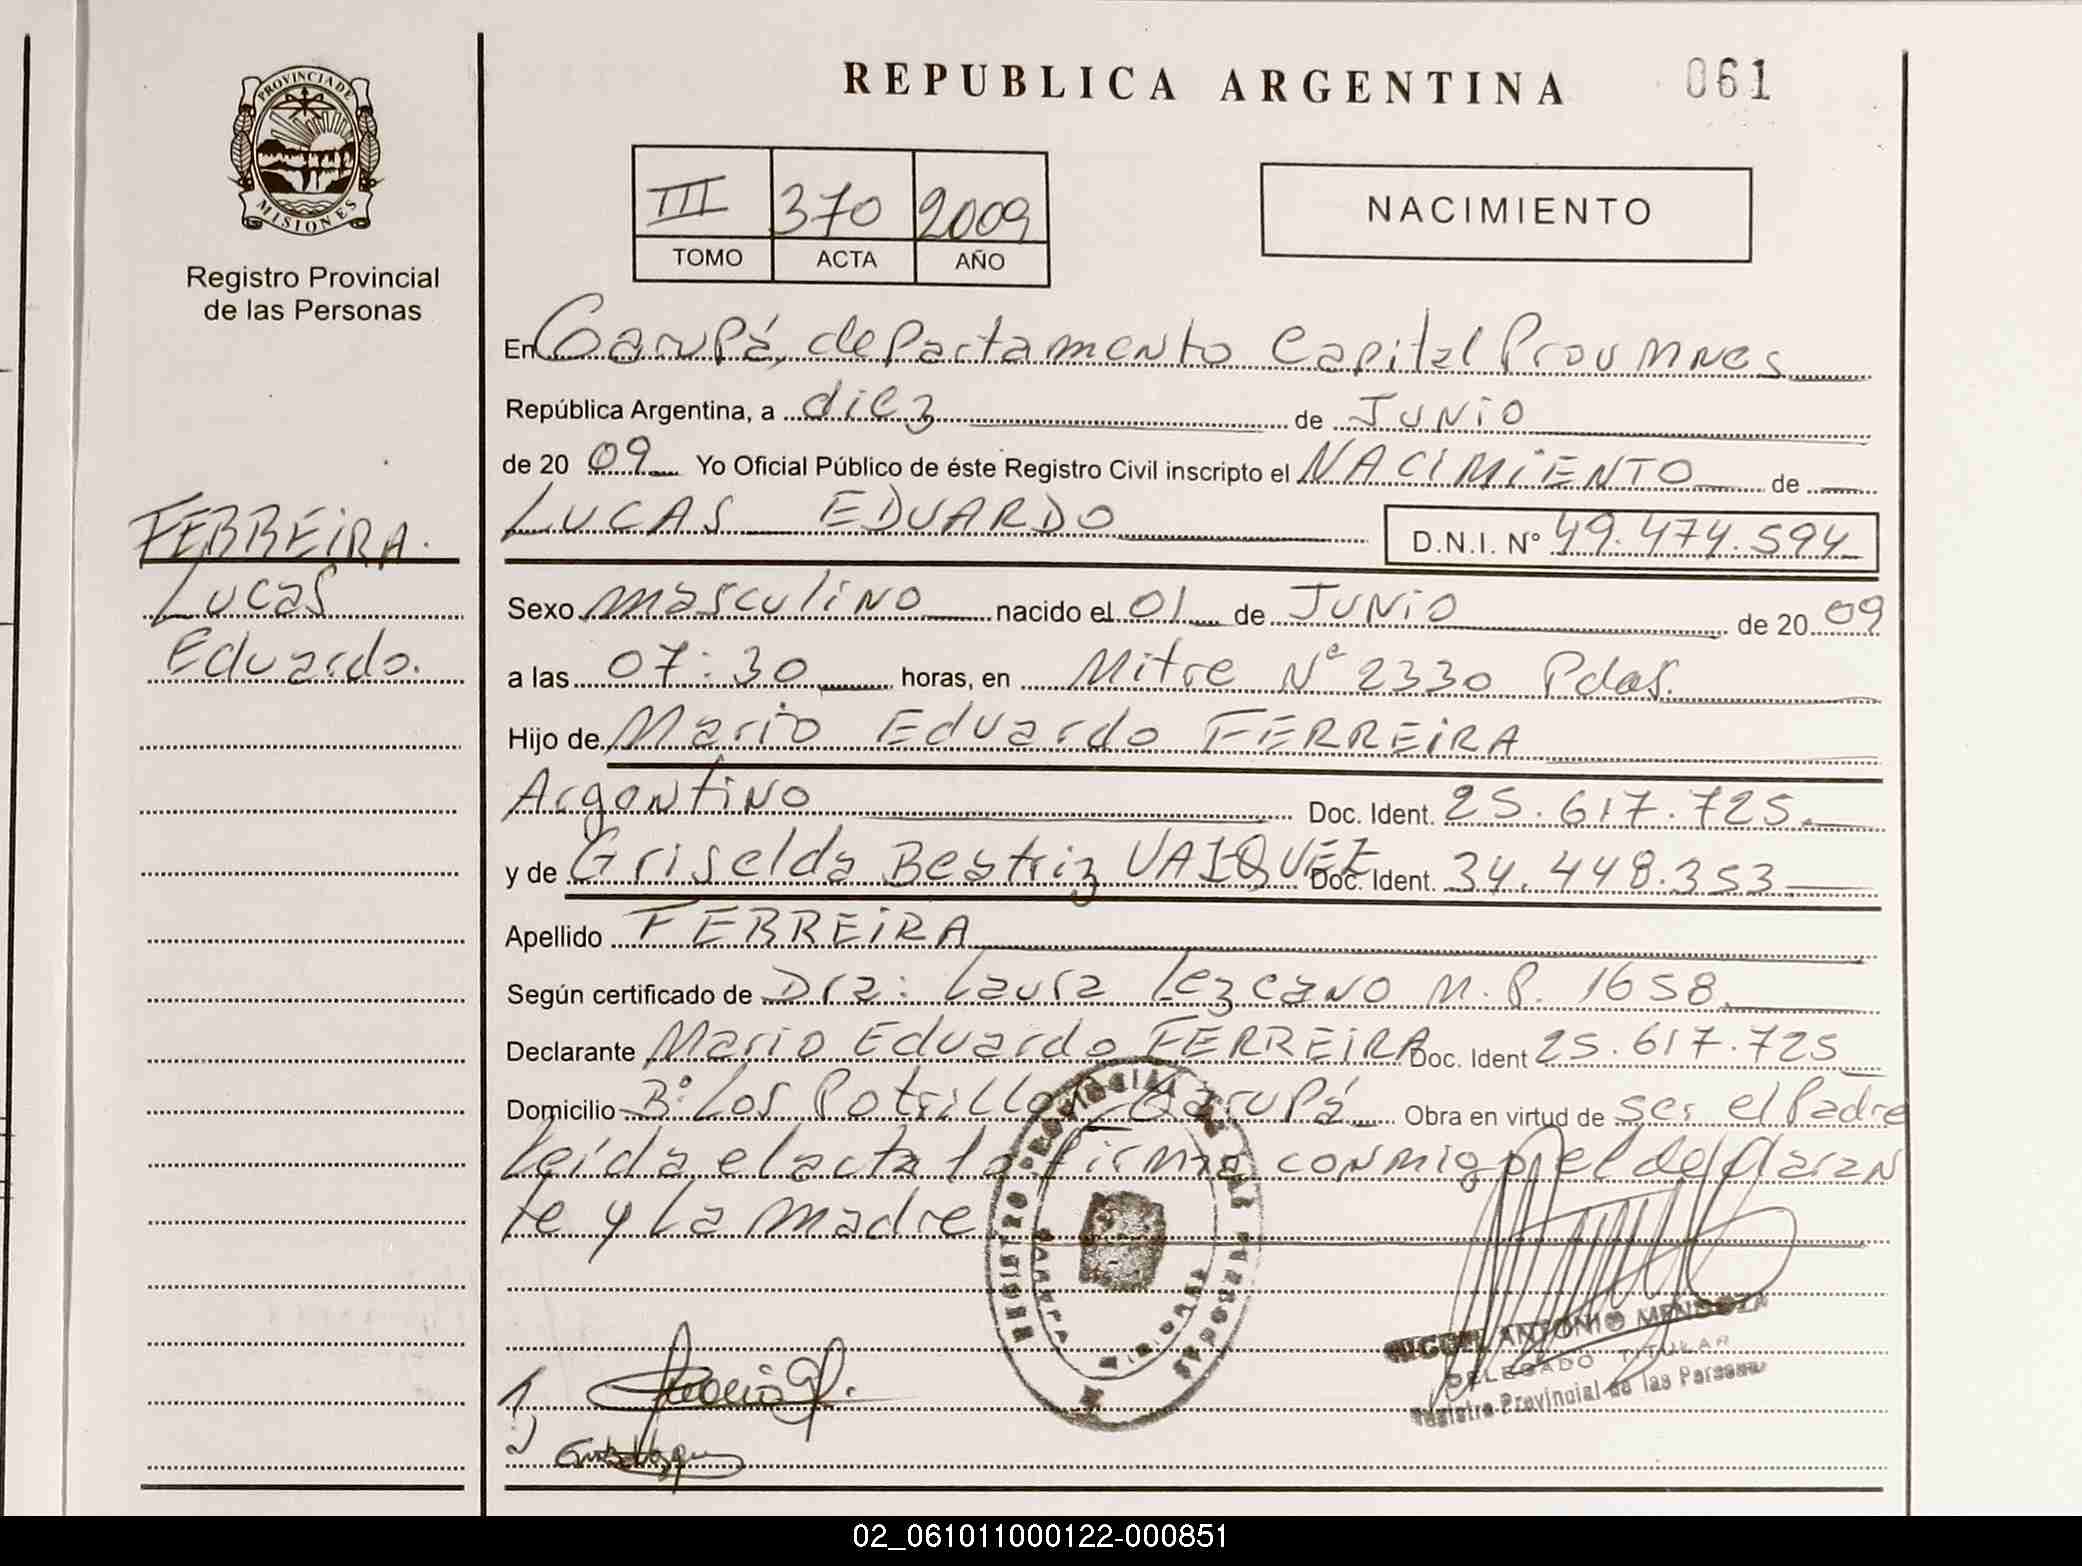 PROVINCIA DE
MISIONES
Registro Provincial
de las Personas
FERREIRA.
Lucas
Eduardo.
REPUBLICA ARGENTINA
061
III 370 2009
TOMO ACTA AÑO
NACIMIENTO
En Garupá, departamento Capital Prov Mnes
República Argentina, a diez de JUNIO
de 20 09 Yo Oficial Público de éste Registro Civil inscripto el NACIMIENTO de
LUCAS EDUARDO D.N.I. Nº 49.474.594
Sexo masculino nacido el 01 de JUNIO de 20 09
a las 07:30 horas, en Mitre Nº 2330 Pdas.
Hijo de Mario Eduardo FERREIRA
Argentino Doc. Ident. 25.617.725.
y de Griselda Beatriz VASQUEZ Doc. Ident. 34.448.353
Apellido FERREIRA
Según certificado de Dra: Laura Lezcano M.P. 1658.
Declarante Mario Eduardo FERREIRA Doc. Ident 25.617.725
Domicilio Bº Los Potrillos Garupá Obra en virtud de ser el Padre
Leída el acta la firma conmigo el declaran
te y la madre
REGISTRO PROVINCIAL DE LAS PERSONAS
GARUPA
MISIONES
MIGUEL ANTONIO MENDOZA
DELEGADO TITULAR
Registro Provincial de las Personas
02_061011000122-000851